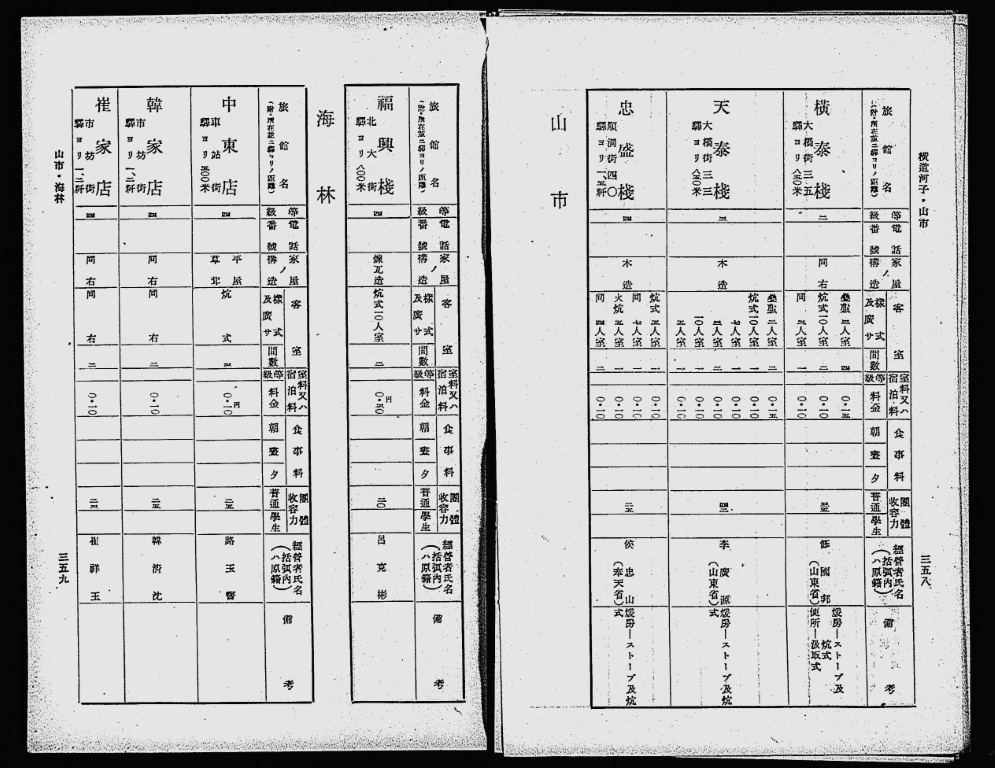 橫道河子・山市
三五八
旅館名
(附・所在並ニ驛ヨリノ距離)
等級
電話番號
家屋ノ構造
客室
樣式及廣サ
間數
室料又ハ宿泊料
等級
料金
食事料
朝
晝
夕
團體收容力
普通
學生
經營者氏名
(括弧內ハ原籍)
備考
橫泰棧
大橋街三五
驛ヨリ八五〇米
二
同右
疊敷三人室 四 〇・一五
炕式一〇人室 一 〇・一〇
同 三人室 二 〇・一〇
國邦
(山東省)
煖房―ストーブ及炕式
便所―汲取式
天泰棧
大橋街三三
驛ヨリ八五〇米
三
木造
疊敷二人室 二 〇・一五
炕式一〇人室 一 〇・一〇
李廣源
(山東省)
煖房―ストーブ及炕式
忠盛棧
順潤街四〇
驛ヨリ一、五粁
四
木造
炕式五人室 一 〇・一〇
同 七人室 一 〇・一〇
火炕五人室 一 〇・一〇
同 四人室 二 〇・一〇
二五
侯忠山
(奉天省)
煖房―ストーブ及炕式
山市
旅館名
(附・所在並ニ驛ヨリノ距離)
等級
電話番號
家屋ノ構造
客室
樣式及廣サ
間數
室料又ハ宿泊料
等級
料金
食事料
朝
晝
夕
團體收容力
普通
學生
經營者氏名
(括弧內ハ原籍)
備考
福興棧
北大街
驛ヨリ八〇〇米
四
煉瓦造
炕式一〇人室
二
〇・五〇円
三〇
呂克彬
海林
旅館名
(附・所在並ニ驛ヨリノ距離)
等級
電話番號
家屋ノ構造
客室
樣式及廣サ
間數
室料又ハ宿泊料
等級
料金
食事料
朝
晝
夕
團體收容力
普通
學生
經營者氏名
(括弧內ハ原籍)
備考
中東店
車站街
驛ヨリ五〇〇米
四
平屋草葺
炕式
四
〇・一〇円
二五
路玉
韓家店
市坊街
驛ヨリ一、二粁
四
同右
同右
二
〇・一〇
韓清沈
崔家店
市坊街
驛ヨリ一、二粁
四
同右
同右
二
〇・一〇
崔祥玉
山市・海林
三五九